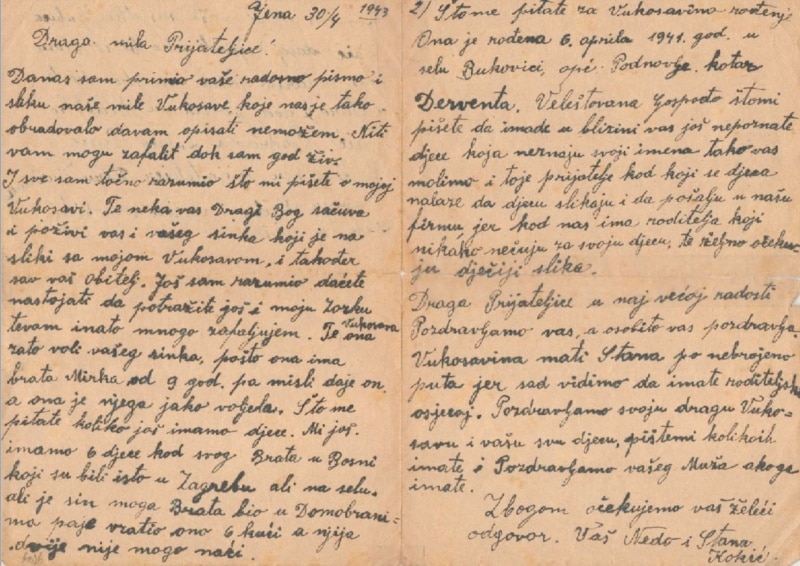 Jena 30/4 1943
Draga mila Prijateljice!
Danas sam primio vaše radosno pismo i
sliku naše mile Vukosave, koje nas je tako
obradovalo davam opisati nemožem. Niti
vam mogu zafalit doh sam god živ.
I sve sam točno razumio što mi pišete o mojoj
Vukosavi. Te neka vas Dragi Bog sačuva
i poživi vas i vašeg sinka koji je na
sliki sa mojom Vukosavom, i također
sav vaš Obitelj. Još sam razumio daćete
nastojati da potražite još i moju Zorku
tevam inato mnogo zafaljujem. Te ona Vukosava
zato voli vašeg sinka, pošto ona ima
brata Mirka od 9 god. pa misli daje on
a ona je njega jako voljela. Što me
pitate koliko još imamo djece. Mi još
imamo 6 djece kod svog Brata u Bosni
koji su bili isto u Zagrebu ali na selu,
ali je sin moga Brata bio u Domobrani-
ma paje vratio ono 6 kući a njija
dvije nije mogo naći.
2) Što me pitate za Vukosavino rođenje
Ona je rođena 6. aprila 1941. god. u
selu Bukovici, opć. Podnovlje kotar
Derventa. Veleštovana Gospođo štomi
pišete da imade u blizini vas još nepoznate
djece koja neznaju svoji imena tako vas
molimo i toje prijatelje kod koji se djeca
nalaze da djecu slikaju i da pošalju u našu
firmu jer kod nas ima roditelja koji
nikako nečuju za svoju djecu, te željno očeku-
ju dječiji slika.
Draga Prijateljice u naj većoj radosti
Pozdravljamo vas, a osobito vas pozdravlja
Vukosavina mati Stana po nebrojeno
puta jer sad vidimo da imate roditeljski
osjećaj. Pozdravljamo svoju dragu Vuko-
savu i vašu svu djecu, pištemi kolikoih
imate i Pozdravljamo vašeg Muža akoga
imate.
Zbogom očekujemo vaš želeći
odgovor. Vaš Nedo i Stana
Kokić